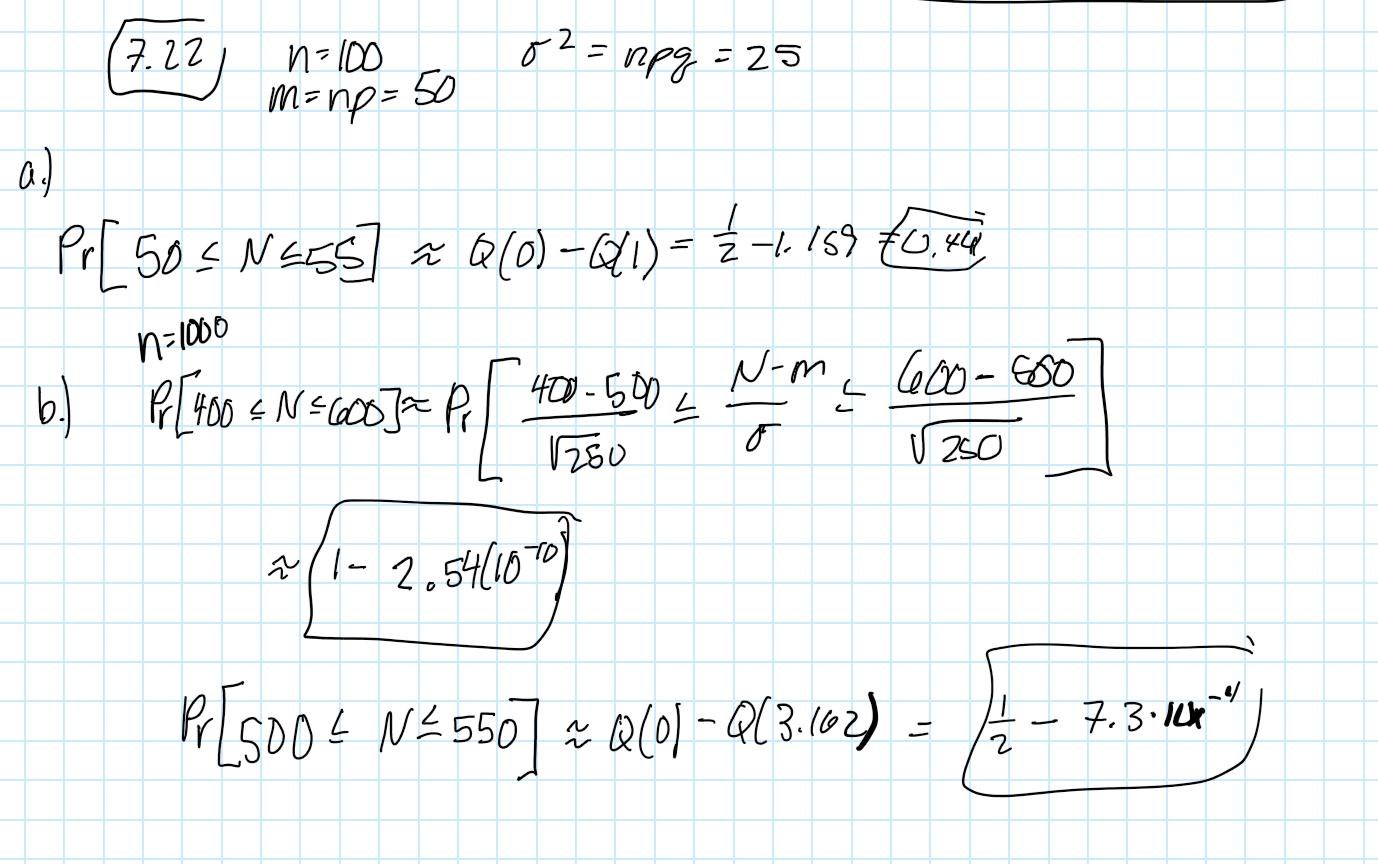 7.22 n=100 σ² = npq = 25
m=np= 50
a.)
Pr[ 50 ≤ N ≤ 55] ≈ Q(0) - Q(1) = 1/2 - 1.159 = 0.44
n=1000
b.) Pr[400 ≤ N ≤ 600] ≈ Pr[ (400-500)/√250 ≤ (N-m)/σ ≤ (600-500)/√250 ]
≈ 1 - 2.54(10⁻¹⁰)
Pr[500 ≤ N ≤ 550] ≈ Q(0) - Q(3.162) = 1/2 - 7.3·10⁻⁴